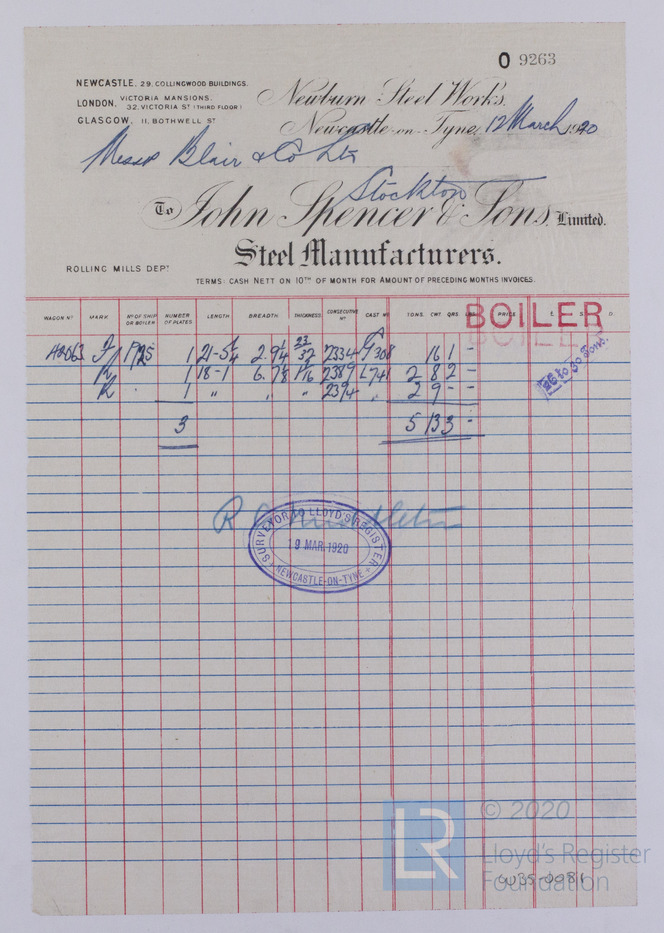 O 9263
NEWCASTLE. 29, COLLINGWOOD BUILDINGS.
LONDON. VICTORIA MANSIONS, 32, VICTORIA ST (THIRD FLOOR)
GLASGOW. 11, BOTHWELL ST
Newburn Steel Works,
Newcastle-on-Tyne, 12 March 1920
Messrs Blair & Co Ltd
Stockton
To John Spencer & Sons, Limited.
Steel Manufacturers.
ROLLING MILLS DEPT
TERMS: CASH NETT ON 10TH OF MONTH FOR AMOUNT OF PRECEDING MONTHS INVOICES.
WAGON NO MARK NO OF SHIP OR BOILER NUMBER OF PLATES LENGTH BREADTH. THICKNESS CONSECUTIVE NO CAST NO TONS. CWT QRS LBS PRICE £ S D.
BOILER
1 21-5¼ 2.9¼ 23/32 2334 16 1 -
1 18-1 6.7⅞ 1 1/16 2389 L741 2 8 2 -
R 1 " " " 2394 " 2 9 - -
26 to 30 Tons.
3 5 13 3 -
SURVEYOR TO LLOYD'S REGISTER
19 MAR. 1920
NEWCASTLE-ON-TYNE
LR
© 2020
Lloyd's Register
Foundation
W35-0081